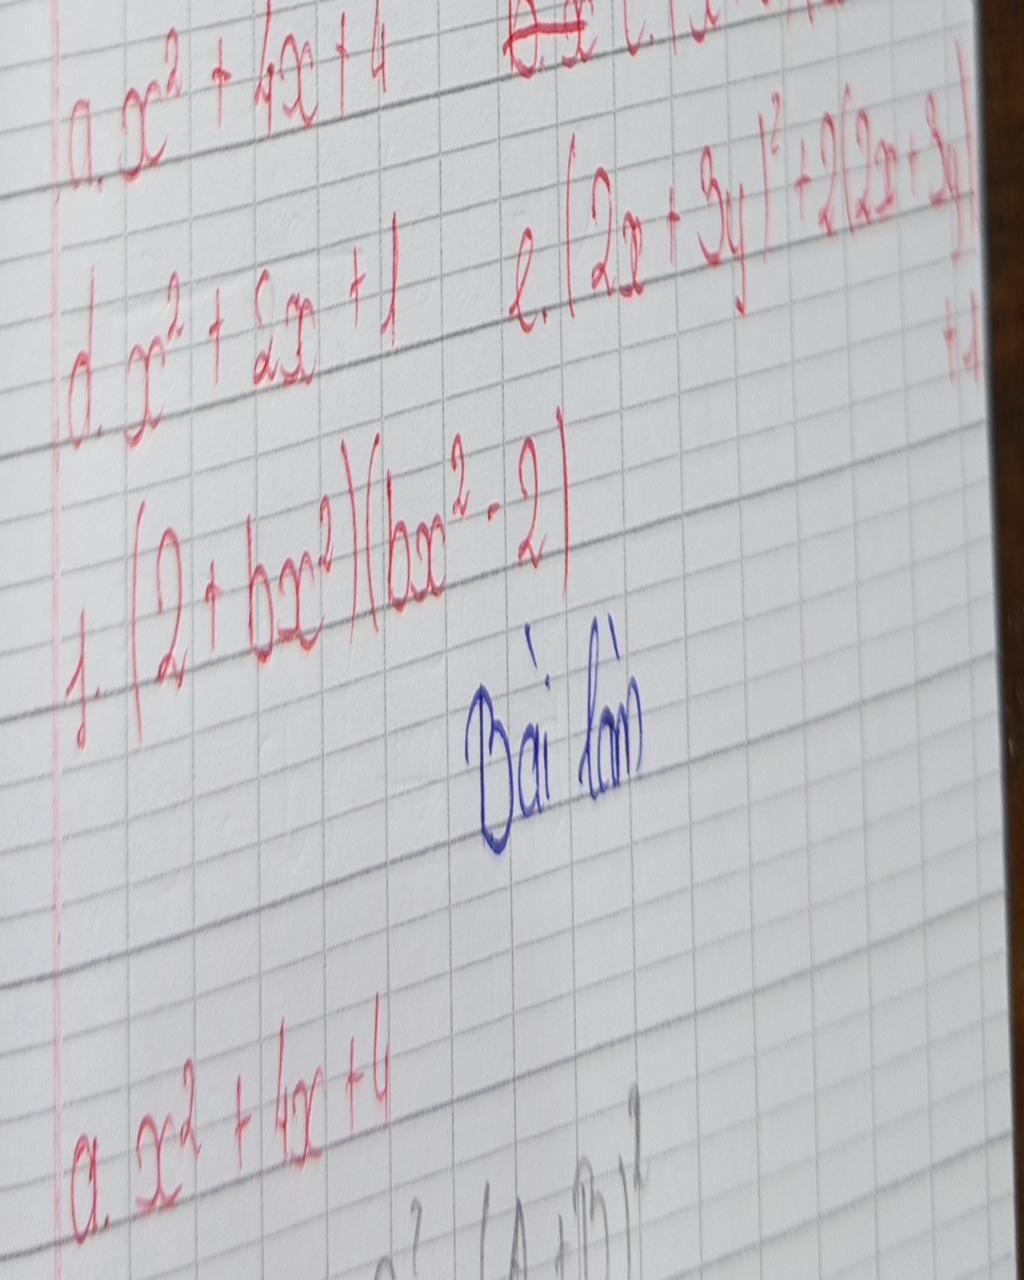 a. x² + 4x + 4
d. x² + 2x + 1 e. (2x + 3y)² + 2(2x + 3y)
+1
f. (2 + bx²)(bx² - 2)
Bài làm
a. x² + 4x + 4
² (A + B)²